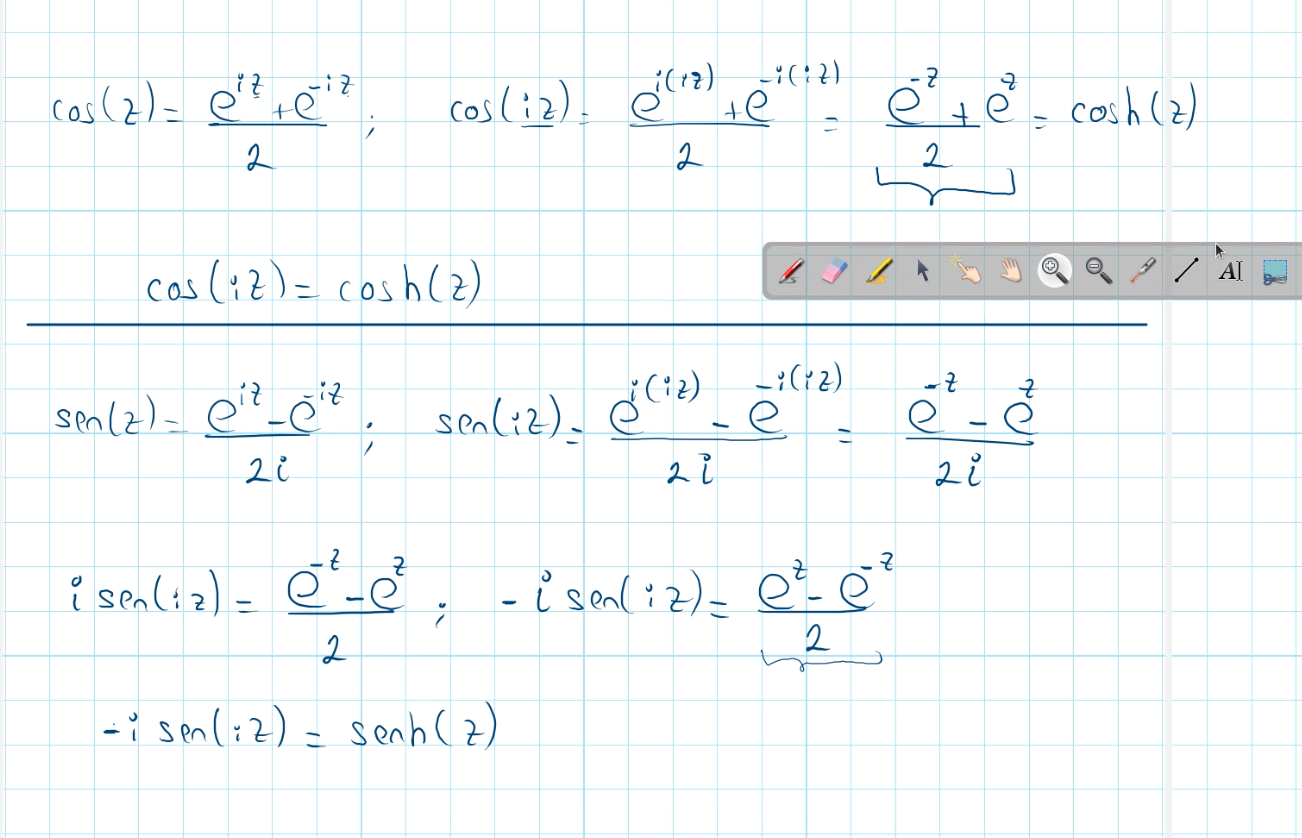 cos(z) = (e^{iz} + e^{-iz})/2 ; cos(iz) = (e^{i(iz)} + e^{-i(iz)})/2 = (e^{-z} + e^{z})/2 = cosh(z)
AI
cos(iz) = cosh(z)
sen(z) = (e^{iz} - e^{-iz})/2i ; sen(iz) = (e^{i(iz)} - e^{-i(iz)})/2i = (e^{-z} - e^{z})/2i
i sen(iz) = (e^{-z} - e^{z})/2 ; -i sen(iz) = (e^{z} - e^{-z})/2
-i sen(iz) = senh(z)